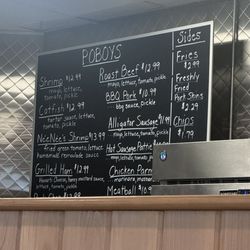 POBOYS
Shrimp $12.99
mayo, lettuce, tomato,
pickle
Catfish $12.99
tartar, lettuce, tomato,
pickle
NéeNee's Shrimp $13.99
fried green tomato, lettuce
homemade remoulade sauce
Grilled Ham $12.99
lettuce, tomato, pickle
Roast Beef $12.99
mayo, lettuce, tomato, pickle
BBQ Pork $10.99
bbq sauce, pickle
Alligator Sausage
mayo, lettuce, tomato, pickle
Hot Sausage Pattie
mayo, lettuce, tomato, pickle
Chicken Parm
Meatball
Sides
Fries
$2.99
Freshly
Fried
Pork Skins
$2.29
Chips
$1.79